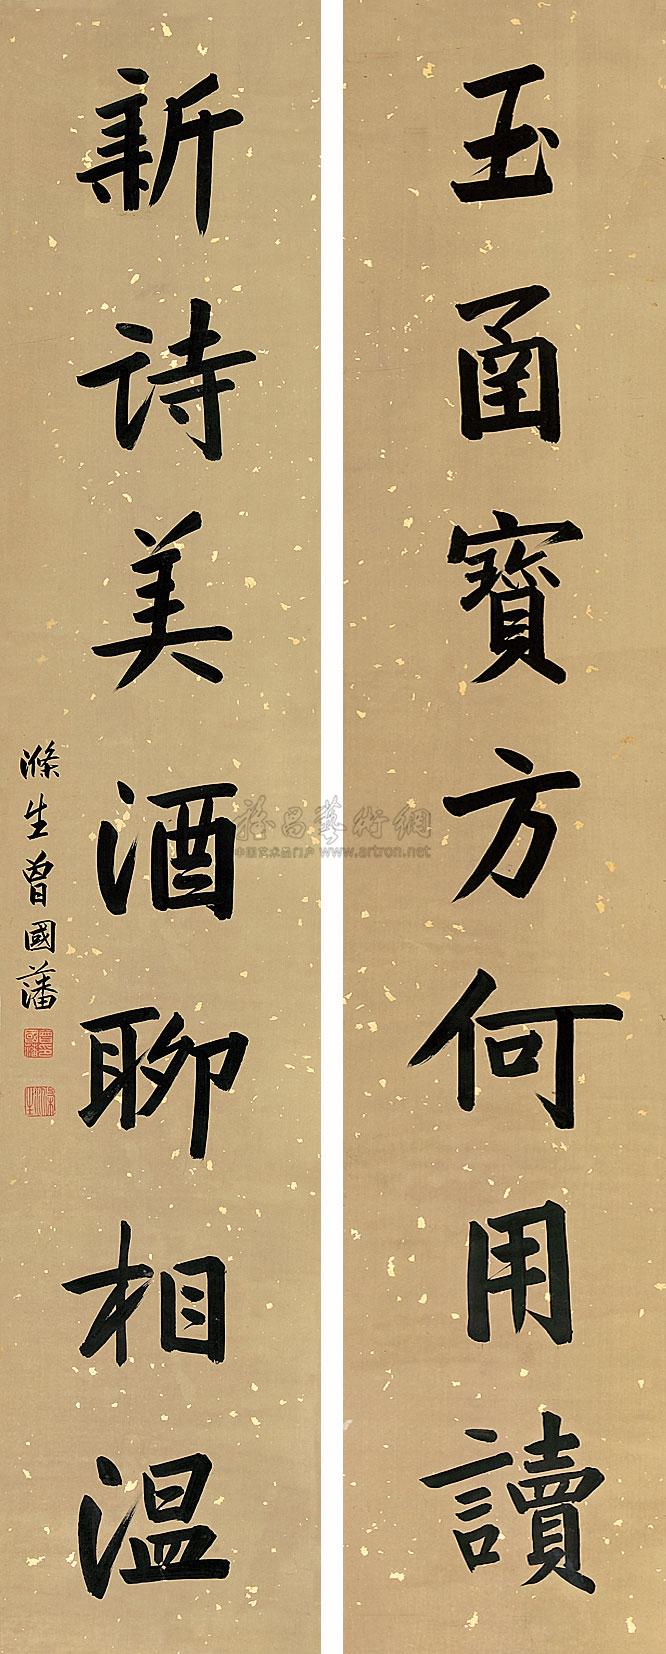 玉函寶方何用讀
新诗美酒聊相温
滌生曾國藩
雅昌藝術網
中国艺术品门户 www.artron.net